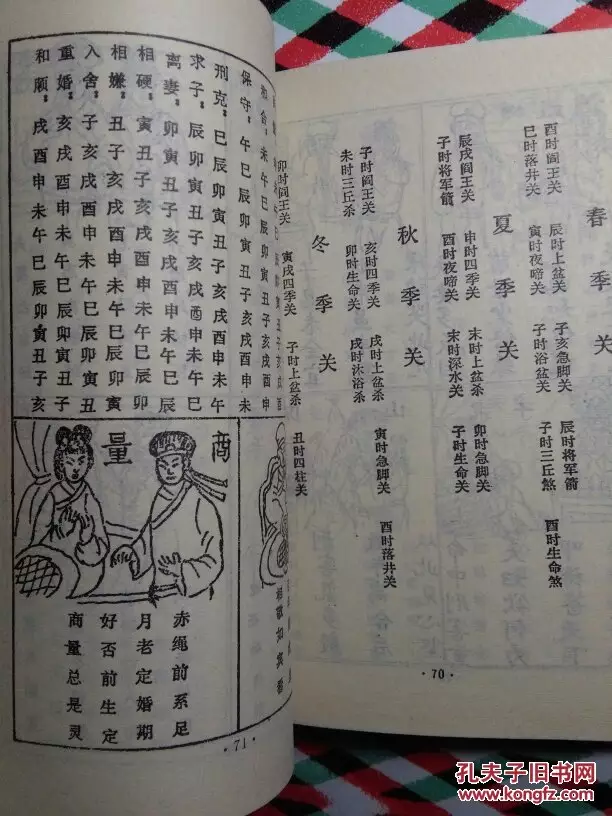 春季关
酉时阎王关 辰时上盆关 子亥急脚关 辰时将军箭 酉时生命煞
巳时落井关 寅时夜啼关 子时浴盆关 子时三丘煞
夏季关
辰戌阎王关 申时四季关 末时上盆杀 卯时急脚关
子时将军箭 酉时夜啼关 末时深水关 子时生命关
秋季关
子时阎王关 亥时四季关 戌时上盆杀 寅时急脚关 酉时落井关
未时三丘杀 卯时生命关 戌时沐浴杀
冬季关
卯时阎王关 寅戌四季关 子时上盆杀 丑时四柱关
·70·
和合：未午巳辰卯寅丑子亥戌酉申
保守：午巳辰卯寅丑子亥戌酉申未
刑克：巳辰卯寅丑子亥戌酉申未午
求子：辰卯寅丑子亥戌酉申未午巳
离妻：卯寅丑子亥戌酉申未午巳辰
相硬：寅丑子亥戌酉申未午巳辰卯
相嫌：丑子亥戌酉申未午巳辰卯寅
入舍：子亥戌酉申未午巳辰卯寅丑
重婚：亥戌酉申未午巳辰卯寅丑子
和顺：戌酉申未午巳辰卯寅丑子亥
相敬如宾
商量
赤绳前系足
月老定婚期
好否前生定
商量总是灵
·71·
孔夫子旧书网
www.kongfz.com